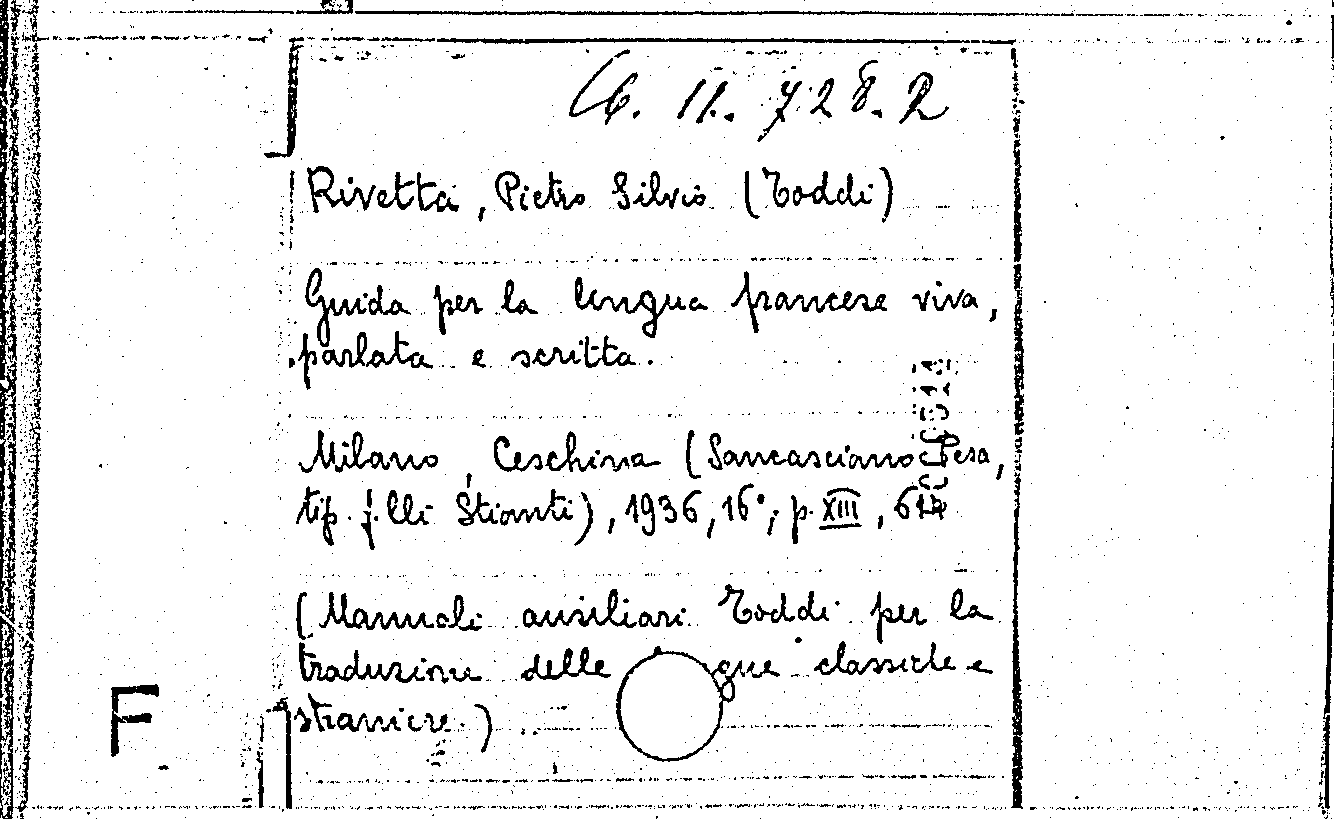 C6. 11. 728. 2
Rivetta, Pietro Silvio (Toddi)
Guida per la lingua francese viva,
parlata e scritta.
Milano, Ceschina (Sancasciano Pesa,
tip. f.lli Stianti), 1936, 16°, p. XIII,
(Manuali ausiliari Toddi per la
traduzione delle classiche e
straniere.)
F